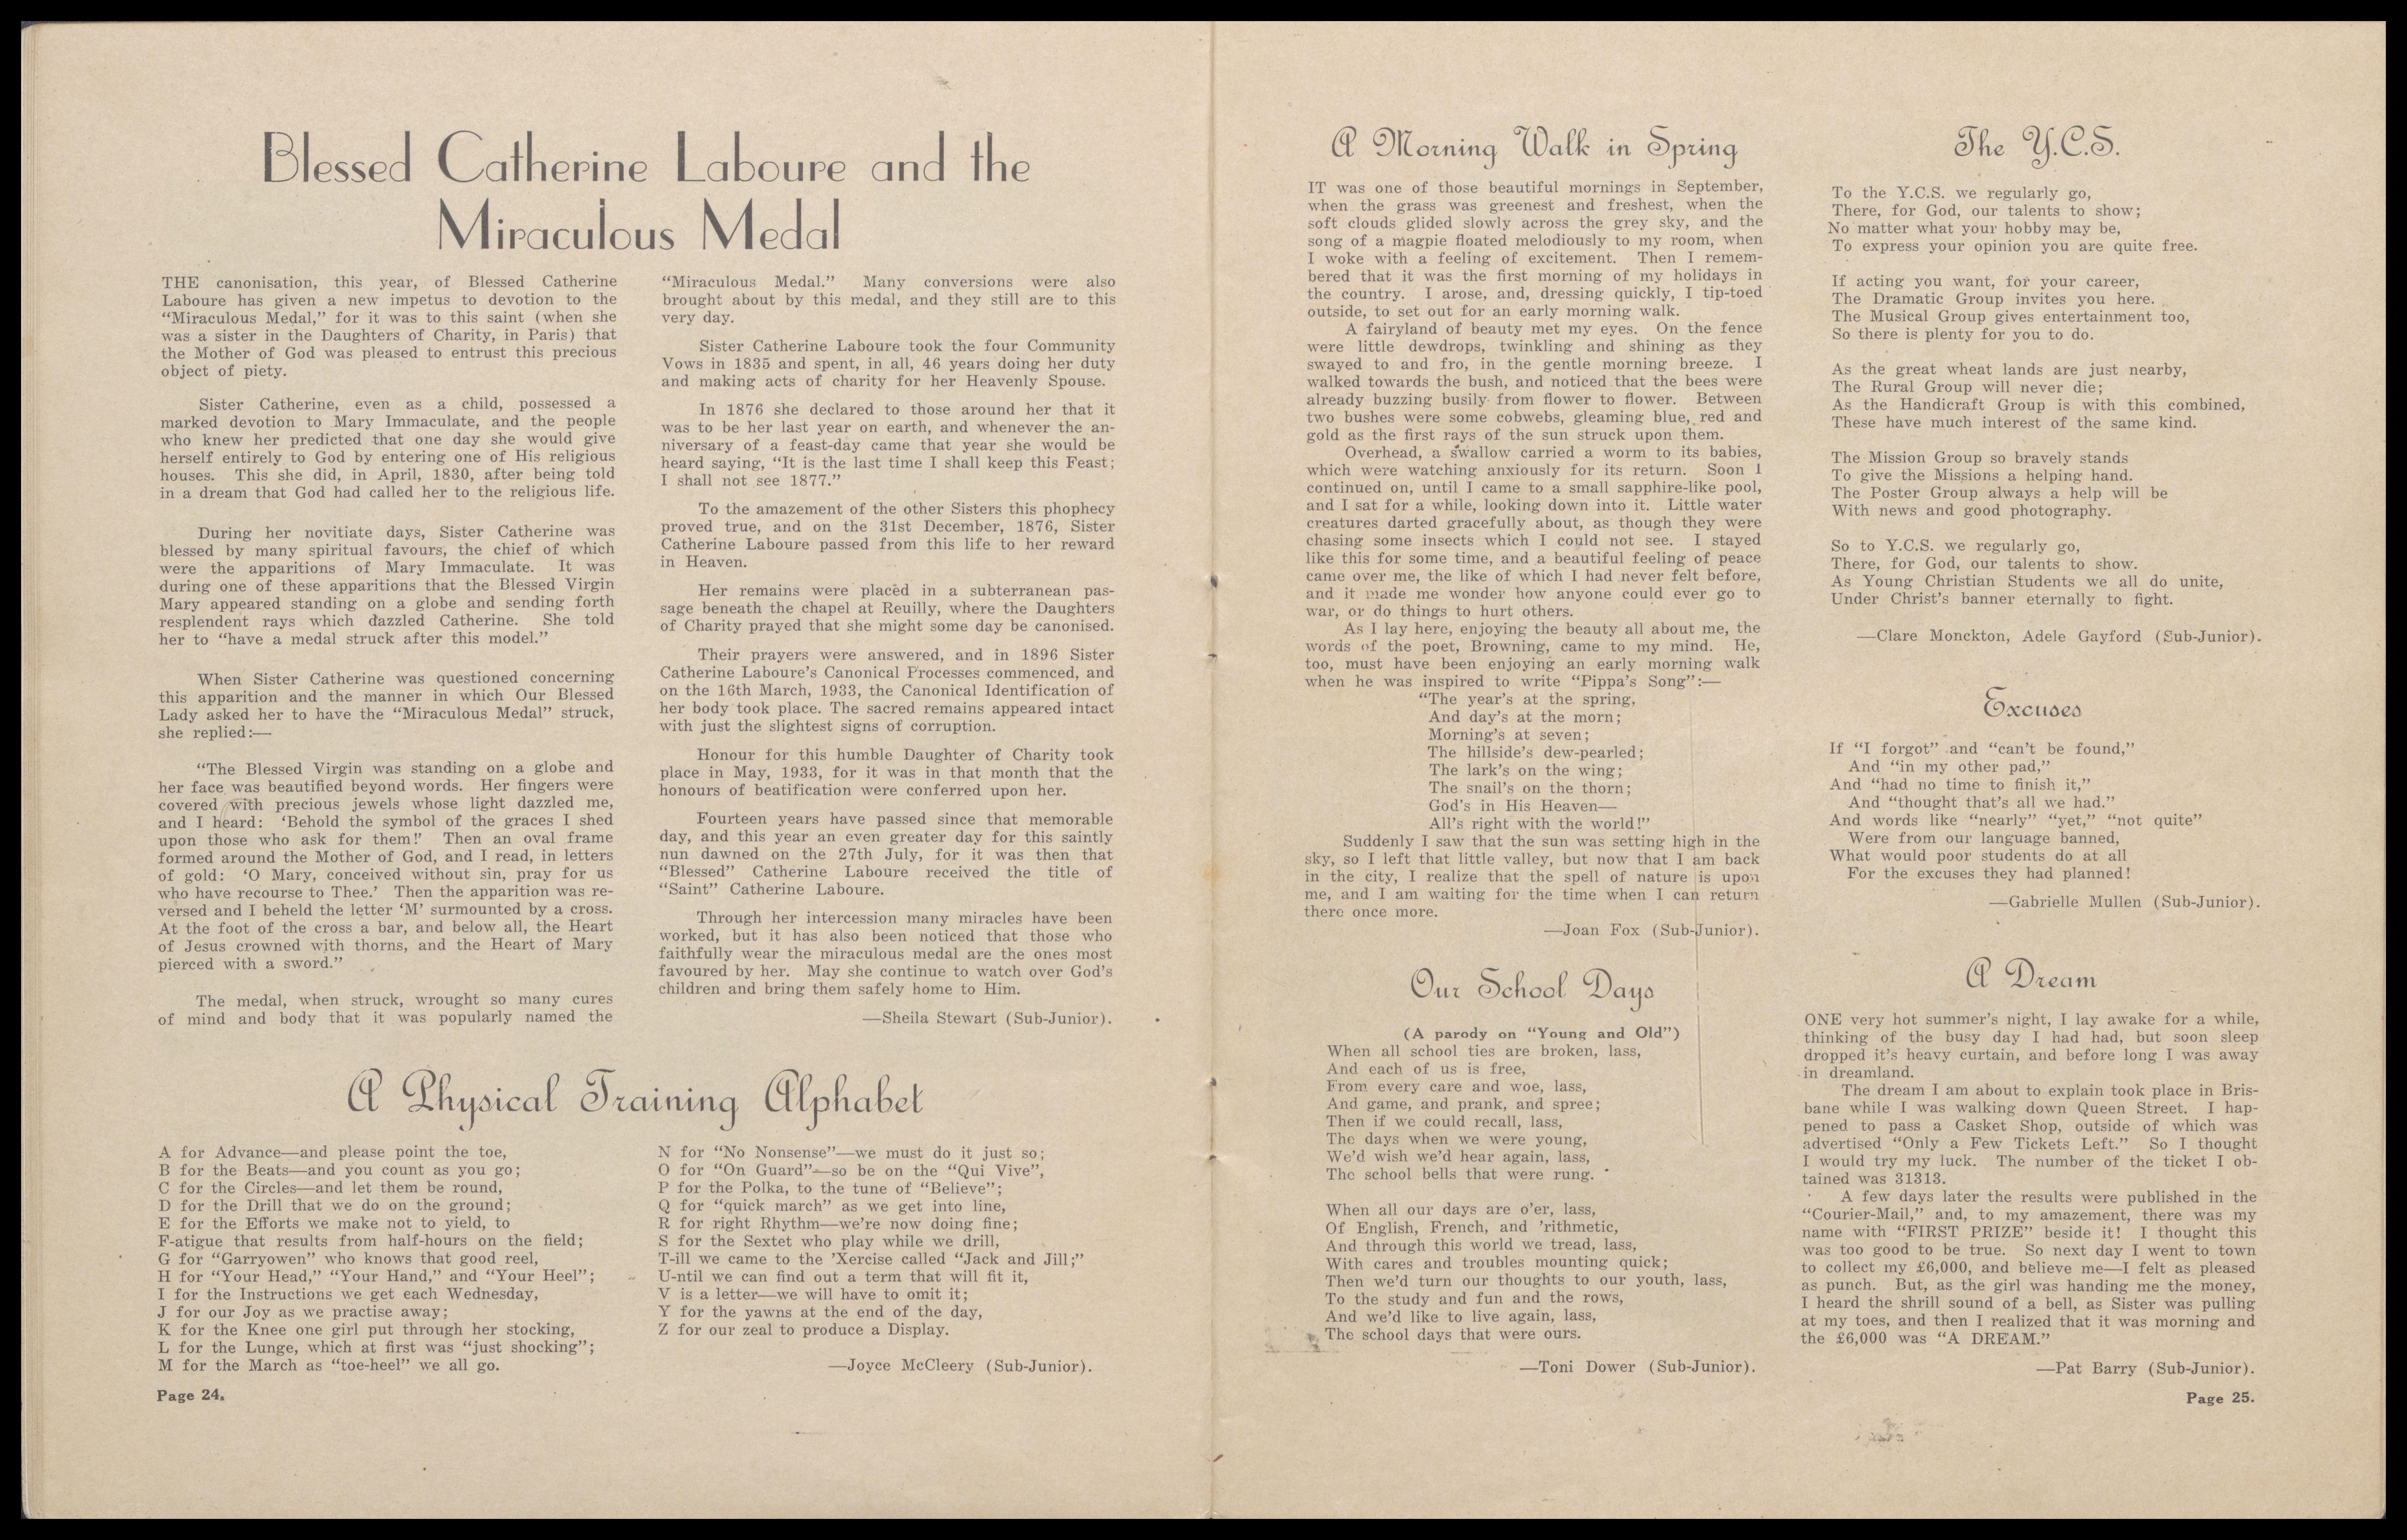 Blessed Catherine Laboure and the
Miraculous Medal
THE canonisation, this year, of Blessed Catherine
Laboure has given a new impetus to devotion to the
“Miraculous Medal,” for it was to this saint (when she
was a sister in the Daughters of Charity, in Paris) that
the Mother of God was pleased to entrust this precious
object of piety.
Sister Catherine, even as a child, possessed a
marked devotion to Mary Immaculate, and the people
who knew her predicted that one day she would give
herself entirely to God by entering one of His religious
houses. This she did, in April, 1830, after being told
in a dream that God had called her to the religious life.
During her novitiate days, Sister Catherine was
blessed by many spiritual favours, the chief of which
were the apparitions of Mary Immaculate. It was
during one of these apparitions that the Blessed Virgin
Mary appeared standing on a globe and sending forth
resplendent rays which dazzled Catherine. She told
her to “have a medal struck after this model.”
When Sister Catherine was questioned concerning
this apparition and the manner in which Our Blessed
Lady asked her to have the “Miraculous Medal” struck,
she replied:—
“The Blessed Virgin was standing on a globe and
her face was beautified beyond words. Her fingers were
covered with precious jewels whose light dazzled me,
and I heard: ‘Behold the symbol of the graces I shed
upon those who ask for them!’ Then an oval frame
formed around the Mother of God, and I read, in letters
of gold: ‘O Mary, conceived without sin, pray for us
who have recourse to Thee.’ Then the apparition was re-
versed and I beheld the letter ‘M’ surmounted by a cross.
At the foot of the cross a bar, and below all, the Heart
of Jesus crowned with thorns, and the Heart of Mary
pierced with a sword.”
The medal, when struck, wrought so many cures
of mind and body that it was popularly named the
“Miraculous Medal.” Many conversions were also
brought about by this medal, and they still are to this
very day.
Sister Catherine Laboure took the four Community
Vows in 1835 and spent, in all, 46 years doing her duty
and making acts of charity for her Heavenly Spouse.
In 1876 she declared to those around her that it
was to be her last year on earth, and whenever the an-
niversary of a feast-day came that year she would be
heard saying, “It is the last time I shall keep this Feast;
I shall not see 1877.”
To the amazement of the other Sisters this phophecy
proved true, and on the 31st December, 1876, Sister
Catherine Laboure passed from this life to her reward
in Heaven.
Her remains were placed in a subterranean pas-
sage beneath the chapel at Reuilly, where the Daughters
of Charity prayed that she might some day be canonised.
Their prayers were answered, and in 1896 Sister
Catherine Laboure’s Canonical Processes commenced, and
on the 16th March, 1933, the Canonical Identification of
her body took place. The sacred remains appeared intact
with just the slightest signs of corruption.
Honour for this humble Daughter of Charity took
place in May, 1933, for it was in that month that the
honours of beatification were conferred upon her.
Fourteen years have passed since that memorable
day, and this year an even greater day for this saintly
nun dawned on the 27th July, for it was then that
“Blessed” Catherine Laboure received the title of
“Saint” Catherine Laboure.
Through her intercession many miracles have been
worked, but it has also been noticed that those who
faithfully wear the miraculous medal are the ones most
favoured by her. May she continue to watch over God’s
children and bring them safely home to Him.
—Sheila Stewart (Sub-Junior).
A Physical Training Alphabet
A for Advance—and please point the toe,
B for the Beats—and you count as you go;
C for the Circles—and let them be round,
D for the Drill that we do on the ground;
E for the Efforts we make not to yield, to
F-atigue that results from half-hours on the field;
G for “Garryowen” who knows that good reel,
H for “Your Head,” “Your Hand,” and “Your Heel”;
I for the Instructions we get each Wednesday,
J for our Joy as we practise away;
K for the Knee one girl put through her stocking,
L for the Lunge, which at first was “just shocking”;
M for the March as “toe-heel” we all go.
N for “No Nonsense”—we must do it just so;
O for “On Guard”—so be on the “Qui Vive”,
P for the Polka, to the tune of “Believe”;
Q for “quick march” as we get into line,
R for right Rhythm—we’re now doing fine;
S for the Sextet who play while we drill,
T-ill we came to the ’Xercise called “Jack and Jill;”
U-ntil we can find out a term that will fit it,
V is a letter—we will have to omit it;
Y for the yawns at the end of the day,
Z for our zeal to produce a Display.
—Joyce McCleery (Sub-Junior).
Page 24.
A Morning Walk in Spring
IT was one of those beautiful mornings in September,
when the grass was greenest and freshest, when the
soft clouds glided slowly across the grey sky, and the
song of a magpie floated melodiously to my room, when
I woke with a feeling of excitement. Then I remem-
bered that it was the first morning of my holidays in
the country. I arose, and, dressing quickly, I tip-toed
outside, to set out for an early morning walk.
A fairyland of beauty met my eyes. On the fence
were little dewdrops, twinkling and shining as they
swayed to and fro, in the gentle morning breeze. I
walked towards the bush, and noticed that the bees were
already buzzing busily from flower to flower. Between
two bushes were some cobwebs, gleaming blue, red and
gold as the first rays of the sun struck upon them.
Overhead, a swallow carried a worm to its babies,
which were watching anxiously for its return. Soon I
continued on, until I came to a small sapphire-like pool,
and I sat for a while, looking down into it. Little water
creatures darted gracefully about, as though they were
chasing some insects which I could not see. I stayed
like this for some time, and a beautiful feeling of peace
came over me, the like of which I had never felt before,
and it made me wonder how anyone could ever go to
war, or do things to hurt others.
As I lay here, enjoying the beauty all about me, the
words of the poet, Browning, came to my mind. He,
too, must have been enjoying an early morning walk
when he was inspired to write “Pippa’s Song”:—
“The year’s at the spring,
And day’s at the morn;
Morning’s at seven;
The hillside’s dew-pearled;
The lark’s on the wing;
The snail’s on the thorn;
God’s in His Heaven—
All’s right with the world!”
Suddenly I saw that the sun was setting high in the
sky, so I left that little valley, but now that I am back
in the city, I realize that the spell of nature is upon
me, and I am waiting for the time when I can return
there once more.
—Joan Fox (Sub-Junior).
Our School Days
(A parody on “Young and Old”)
When all school ties are broken, lass,
And each of us is free,
From every care and woe, lass,
And game, and prank, and spree;
Then if we could recall, lass,
The days when we were young,
We’d wish we’d hear again, lass,
The school bells that were rung.
When all our days are o’er, lass,
Of English, French, and ’rithmetic,
And through this world we tread, lass,
With cares and troubles mounting quick;
Then we’d turn our thoughts to our youth, lass,
To the study and fun and the rows,
And we’d like to live again, lass,
The school days that were ours.
—Toni Dower (Sub-Junior).
The Y.C.S.
To the Y.C.S. we regularly go,
There, for God, our talents to show;
No matter what your hobby may be,
To express your opinion you are quite free.
If acting you want, for your career,
The Dramatic Group invites you here.
The Musical Group gives entertainment too,
So there is plenty for you to do.
As the great wheat lands are just nearby,
The Rural Group will never die;
As the Handicraft Group is with this combined,
These have much interest of the same kind.
The Mission Group so bravely stands
To give the Missions a helping hand.
The Poster Group always a help will be
With news and good photography.
So to Y.C.S. we regularly go,
There, for God, our talents to show.
As Young Christian Students we all do unite,
Under Christ’s banner eternally to fight.
—Clare Monckton, Adele Gayford (Sub-Junior).
Excuses
If “I forgot” and “can’t be found,”
And “in my other pad,”
And “had no time to finish it,”
And “thought that’s all we had.”
And words like “nearly” “yet,” “not quite”
Were from our language banned,
What would poor students do at all
For the excuses they had planned!
—Gabrielle Mullen (Sub-Junior).
A Dream
ONE very hot summer’s night, I lay awake for a while,
thinking of the busy day I had had, but soon sleep
dropped it’s heavy curtain, and before long I was away
in dreamland.
The dream I am about to explain took place in Bris-
bane while I was walking down Queen Street. I hap-
pened to pass a Casket Shop, outside of which was
advertised “Only a Few Tickets Left.” So I thought
I would try my luck. The number of the ticket I ob-
tained was 31313.
A few days later the results were published in the
“Courier-Mail,” and, to my amazement, there was my
name with “FIRST PRIZE” beside it! I thought this
was too good to be true. So next day I went to town
to collect my £6,000, and believe me—I felt as pleased
as punch. But, as the girl was handing me the money,
I heard the shrill sound of a bell, as Sister was pulling
at my toes, and then I realized that it was morning and
the £6,000 was “A DREAM.”
—Pat Barry (Sub-Junior).
Page 25.